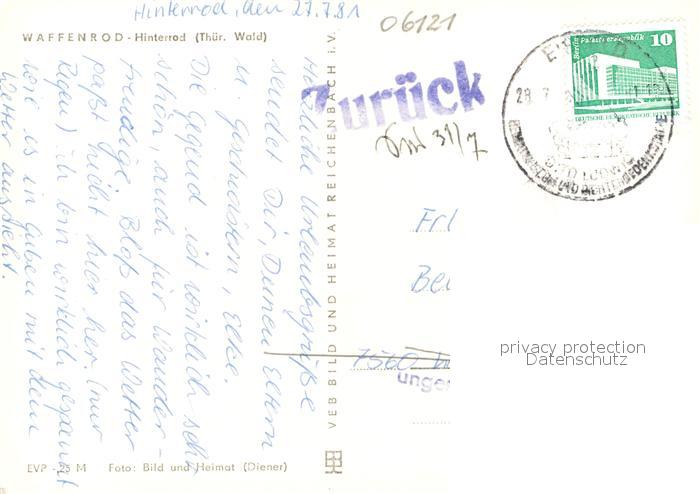 Hinterrod, den 27.7.81
06121
WAFFENROD - Hinterrod (Thür. Wald)
Herzliche Urlaubsgrüße
sendet Dir, Deinen Eltern
u. Geschwistern, Elke.
Die Gegend ist wirklich sehr
schön, auch für Wander-
freudige. Bloß das Wetter
paßt nicht hier her. (nur
Regen) ich bin wirklich gespannt
wie es in Guben mit dem
Wetter aussieht.
VEB BILD UND HEIMAT REICHENBACH i. V.
Zurück
31/7
Berlin Palast der Republik
10
DEUTSCHE DEMOKRATISCHE REPUBLIK
28.7.
OTTO LUDWIG
Frl
Be
7560
unge
privacy protection
Datenschutz
EVP -25 M Foto: Bild und Heimat (Diener)